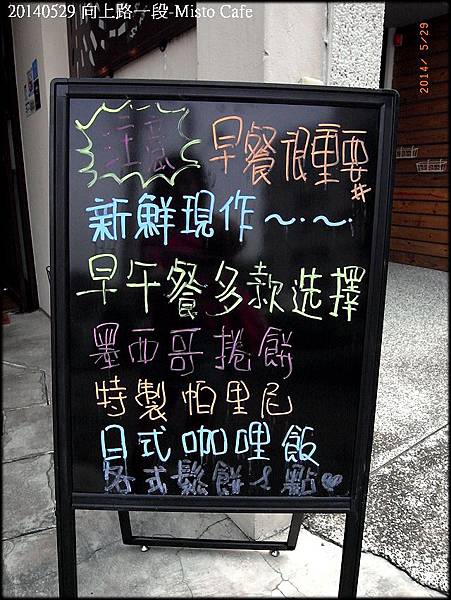 20140529 向上路一段-Misto Cafe
2014/ 5/29
注意 早餐很重要
新鮮現作～.～.
早午餐多款選擇
墨西哥捲餅
特製帕里尼
日式咖哩飯
各式鬆餅、點♥